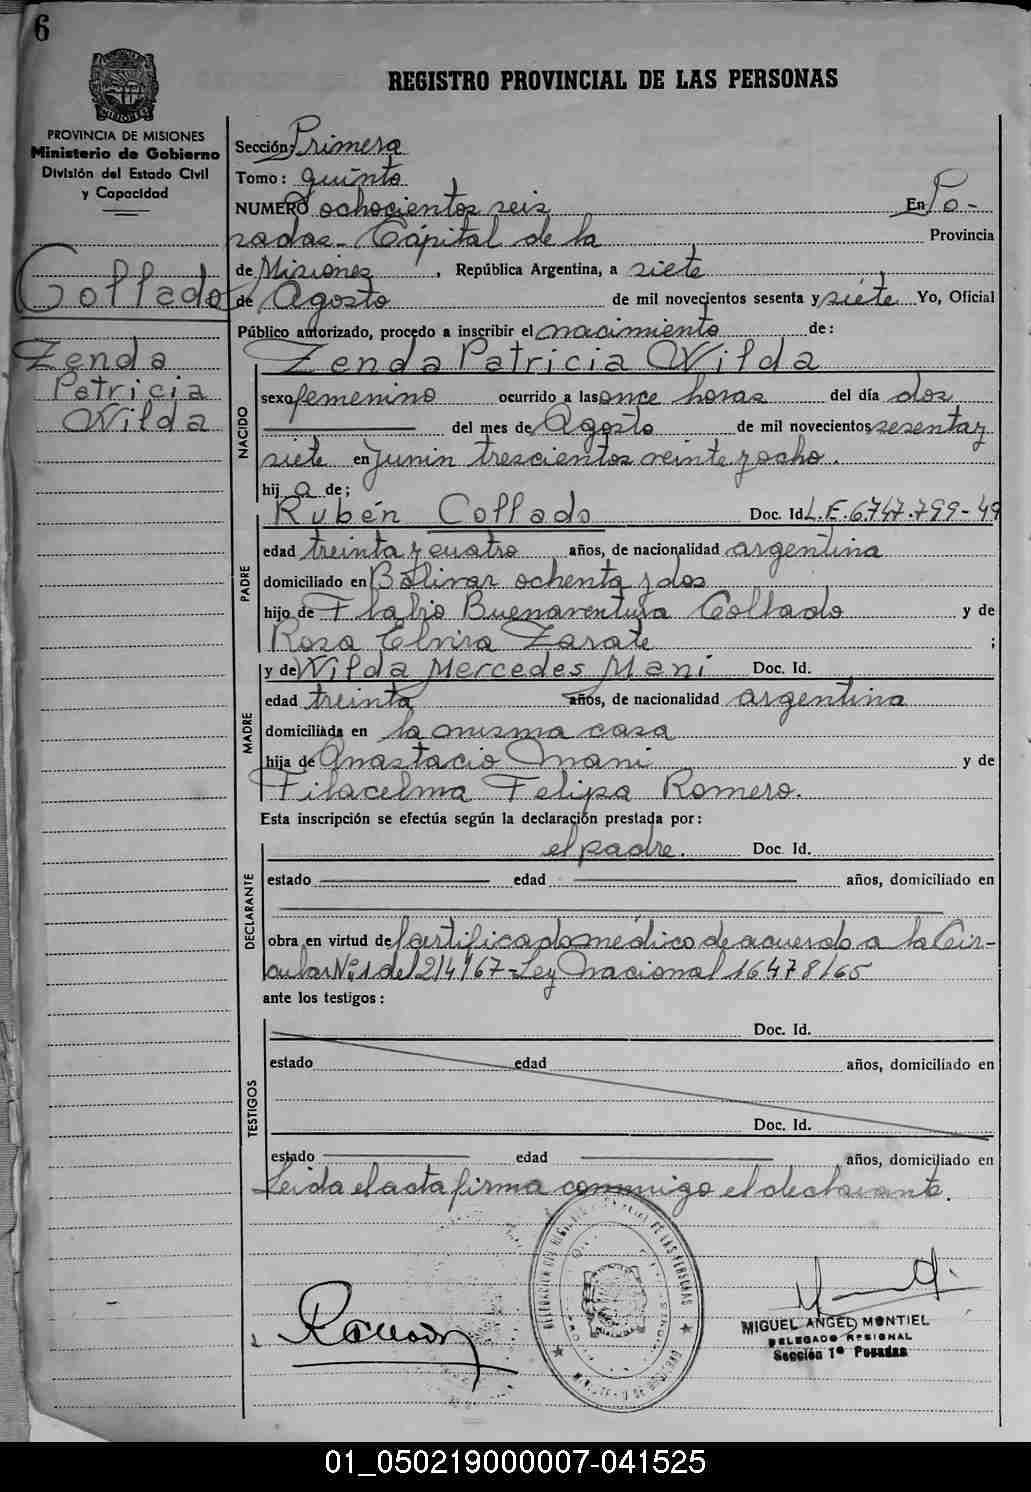 6
REGISTRO PROVINCIAL DE LAS PERSONAS
PROVINCIA DE MISIONES
Ministerio de Gobierno
División del Estado Civil
y Capacidad
Collado
Zenda
Patricia
Wilda
Sección: Primera
Tomo: quinto
NUMERO ochocientos seis En Po-
sadas - Cápital de la Provincia
de Misiones, República Argentina, a siete
de Agosto de mil novecientos sesenta y siete Yo, Oficial
Público autorizado, procedo a inscribir el nacimiento de:
NACIDO
Zenda Patricia Wilda
sexo femenino ocurrido a las once horas del día dos
del mes de Agosto de mil novecientos sesenta y
siete en Junin trescientos veinte y ocho.
hij a de;
PADRE
Rubén Collado Doc. Id. L.E. 6.747.799-49
edad treinta y cuatro años, de nacionalidad argentina
domiciliado en Bolivar ochenta y dos
hijo de Flabio Buenaventura Collado y de
Rosa Elvira Zarate ;
MADRE
y de Wilda Mercedes Mani Doc. Id.
edad treinta años, de nacionalidad argentina
domiciliada en la misma casa
hija de Anastacio Mani y de
Filacelma Felipa Romero.
Esta inscripción se efectúa según la declaración prestada por:
DECLARANTE
el padre. Doc. Id.
estado edad años, domiciliado en
obra en virtud de Certificado médico de acuerdo a la Cir-
cular Nº 1 del 2/4/67 - Ley Nacional 16478/65
ante los testigos:
TESTIGOS
Doc. Id.
estado edad años, domiciliado en
Doc. Id.
estado edad años, domiciliado en
Leida el acta firma conmigo el declarante.
MIGUEL ANGEL MONTIEL
DELEGADO REGIONAL
Sección 1ª Posadas
01_050219000007-041525